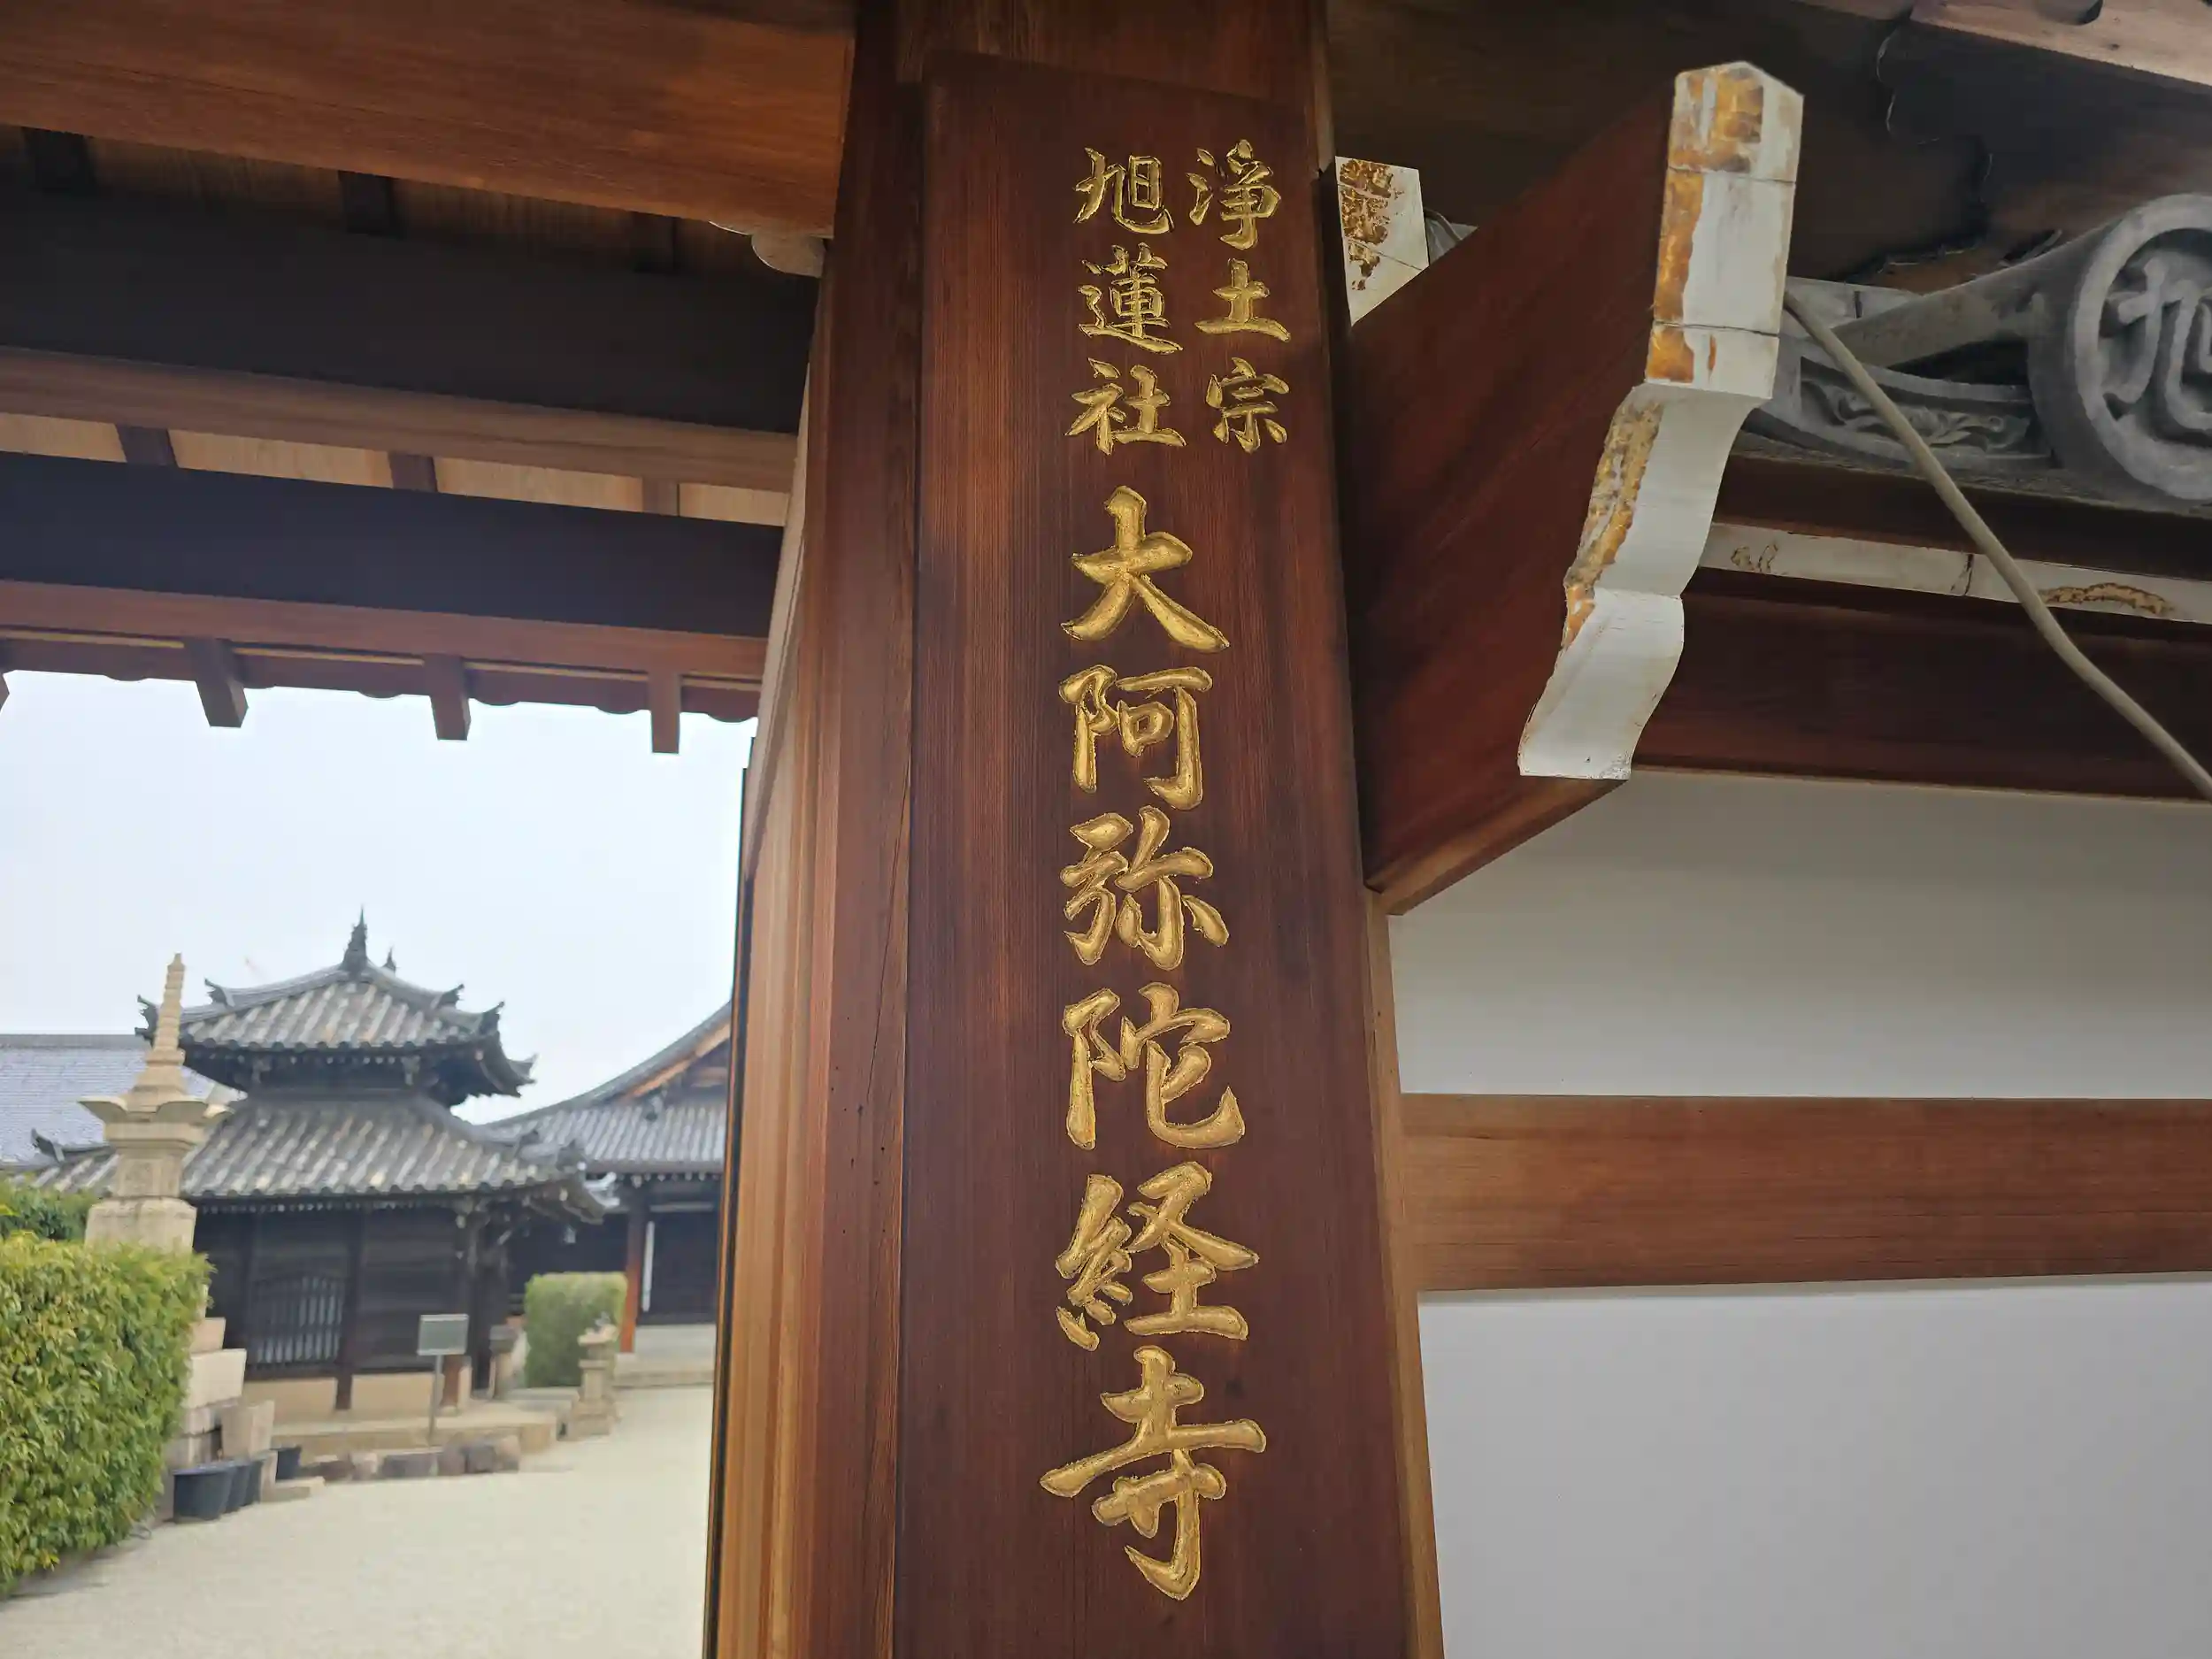 浄土宗
旭蓮社
大阿弥陀経寺
旭